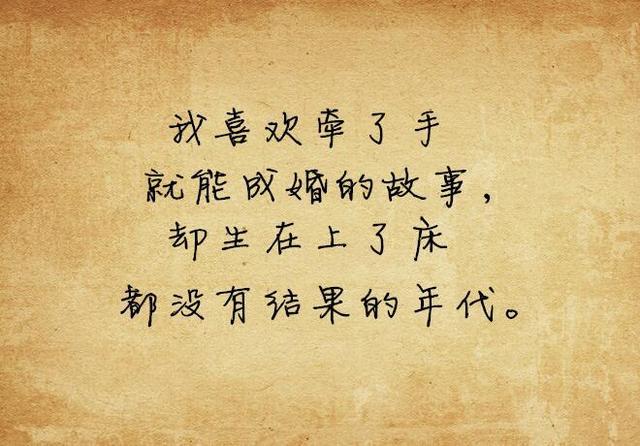 我喜欢牵了手
就能成婚的故事，
却生在上了床
都没有结果的年代。